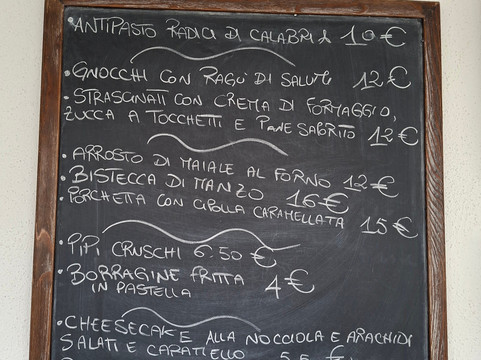 • ANTIPASTO RADICI DI CALABRIA 10€
• GNOCCHI CON RAGÙ DI SALUMI 12€
• STRASCINATI CON CREMA DI FORMAGGIO,
ZUCCA A TOCCHETTI E PANE SAPORITO 12€
• ARROSTO DI MAIALE AL FORNO 12€
• BISTECCA DI MANZO 16€
• PORCHETTA CON CIPOLLA CARAMELLATA 15€
• PIPI CRUSCHI 6.50€
• BORRAGINE FRITTA
IN PASTELLA 4€
• CHEESECAKE ALLA NOCCIOLA E ARACHIDI
SALATI E CARAMELLO